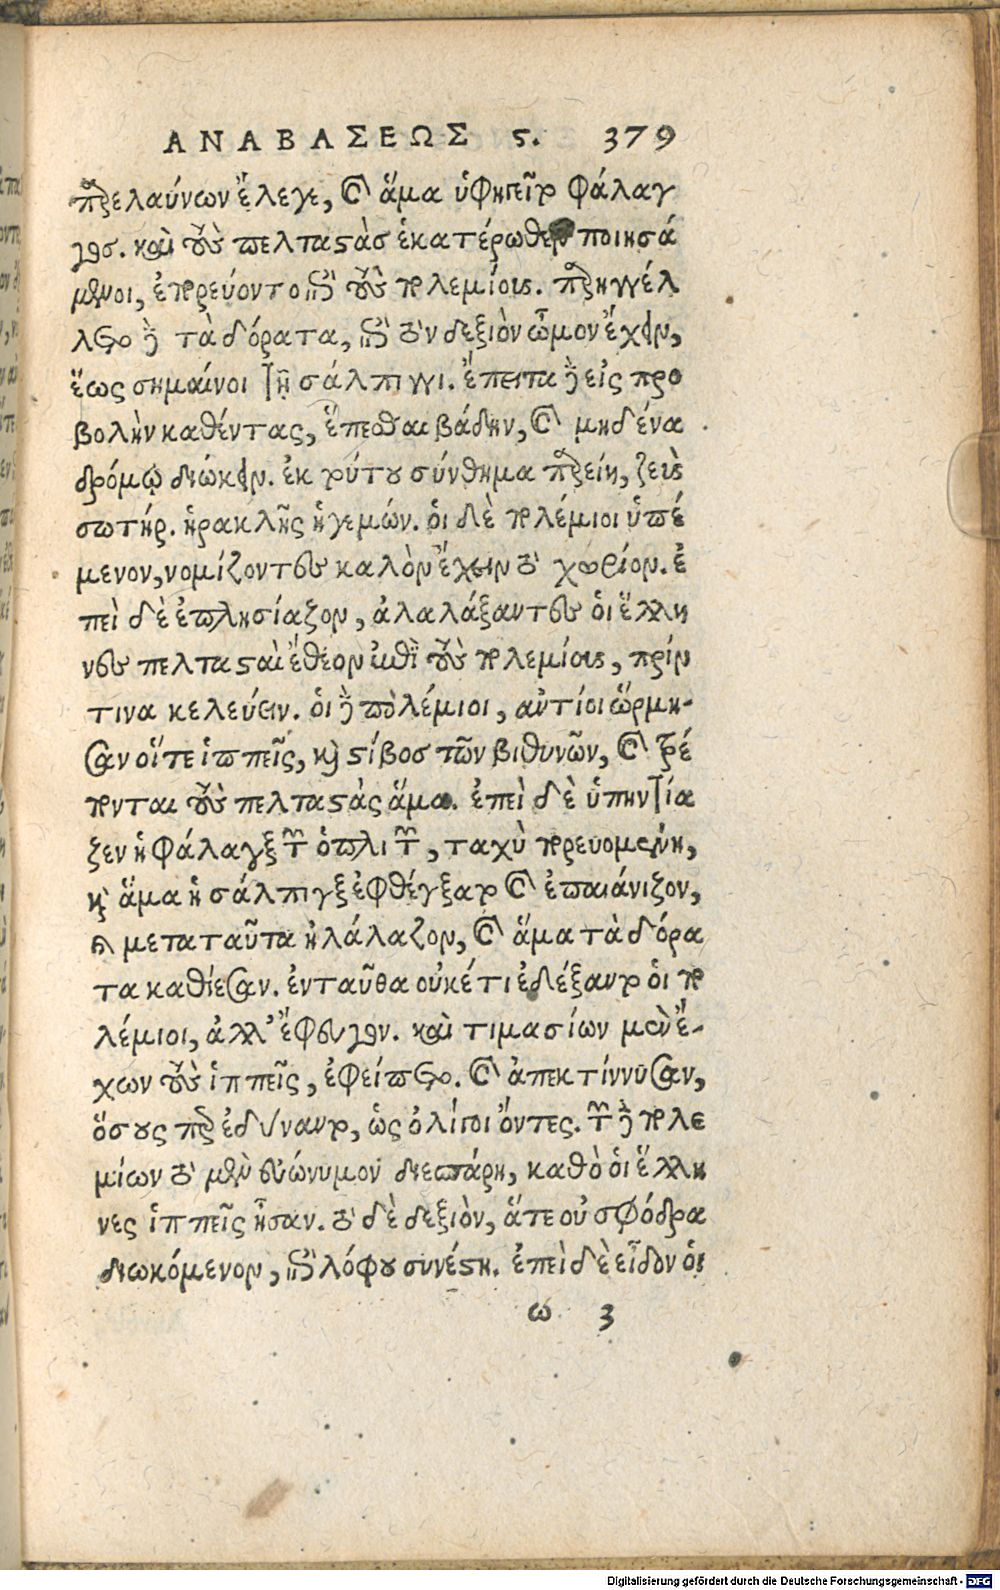 ΑΝΑΒΑΣΕΩΣ ϛ. 379
παρελαύνων ἔλεγε, καὶ ἅμα ὑφηγεῖτο φάλαγ
γος. καὶ τοὺς πελταστὰς ἑκατέρωθεν ποιησά
μενοι, ἐπορεύοντο ἐπὶ τοὺς πολεμίους. παρηγγέλ
λετο δὲ τὰ δόρατα, ἐπὶ τὸν δεξιὸν ὦμον ἔχειν,
ἕως σημαίνοι τῇ σάλπιγγι. ἔπειτα δὲ εἰς προ
βολὴν καθέντας, ἕπεσθαι βάδην, καὶ μηδένα
δρόμῳ διώκειν. ἐκ τούτου σύνθημα παρείη, ζεὺς
σωτήρ. ἡρακλῆς ἡγεμών. οἱ δὲ πολέμιοι ὑπέ
μενον, νομίζοντες καλὸν ἔχειν τὸ χωρίον. ἐ
πεὶ δὲ ἐπλησίαζον, ἀλαλάξαντες οἱ ἕλλη
νες πελτασταὶ ἔθεον ἐπὶ τοὺς πολεμίους, πρίν
τινα κελεύειν. οἱ δὲ πολέμιοι, ἀντίοι ὥρμη-
σαν οἵ τε ἱππεῖς, καὶ στίβος τῶν βιθυνῶν, καὶ τρέ
πονται τοὺς πελταστὰς ἅμα. ἐπεὶ δὲ ὑπηντία
ζεν ἡ φάλαγξ τῶν ὁπλιτῶν, ταχὺ πορευομένη,
καὶ ἅμα ἡ σάλπιγξ ἐφθέγξατο καὶ ἐπαιάνιζον,
καὶ μετὰ ταῦτα ἠλάλαζον, καὶ ἅμα τὰ δόρα
τα καθίεσαν. ἐνταῦθα οὐκέτι ἐδέξαντο οἱ πο
λέμιοι, ἀλλ' ἔφευγον. καὶ τιμασίων μὲν ἔ-
χων τοὺς ἱππεῖς, ἐφείπετο. καὶ ἀπεκτίννυσαν,
ὅσους περ ἐδύναντο, ὡς ὀλίγοι ὄντες. τῶν δὲ πολε
μίων τὸ μὲν εὐώνυμον διεσπάρη, καθὸ οἱ ἕλλη
νες ἱππεῖς ἦσαν. τὸ δὲ δεξιὸν, ἅτε οὐ σφόδρα
διωκόμενον, ἐπὶ λόφου συνέστη. ἐπεὶ δὲ εἶδον οἱ
ω 3
Digitalisierung gefördert durch die Deutsche Forschungsgemeinschaft - DFG